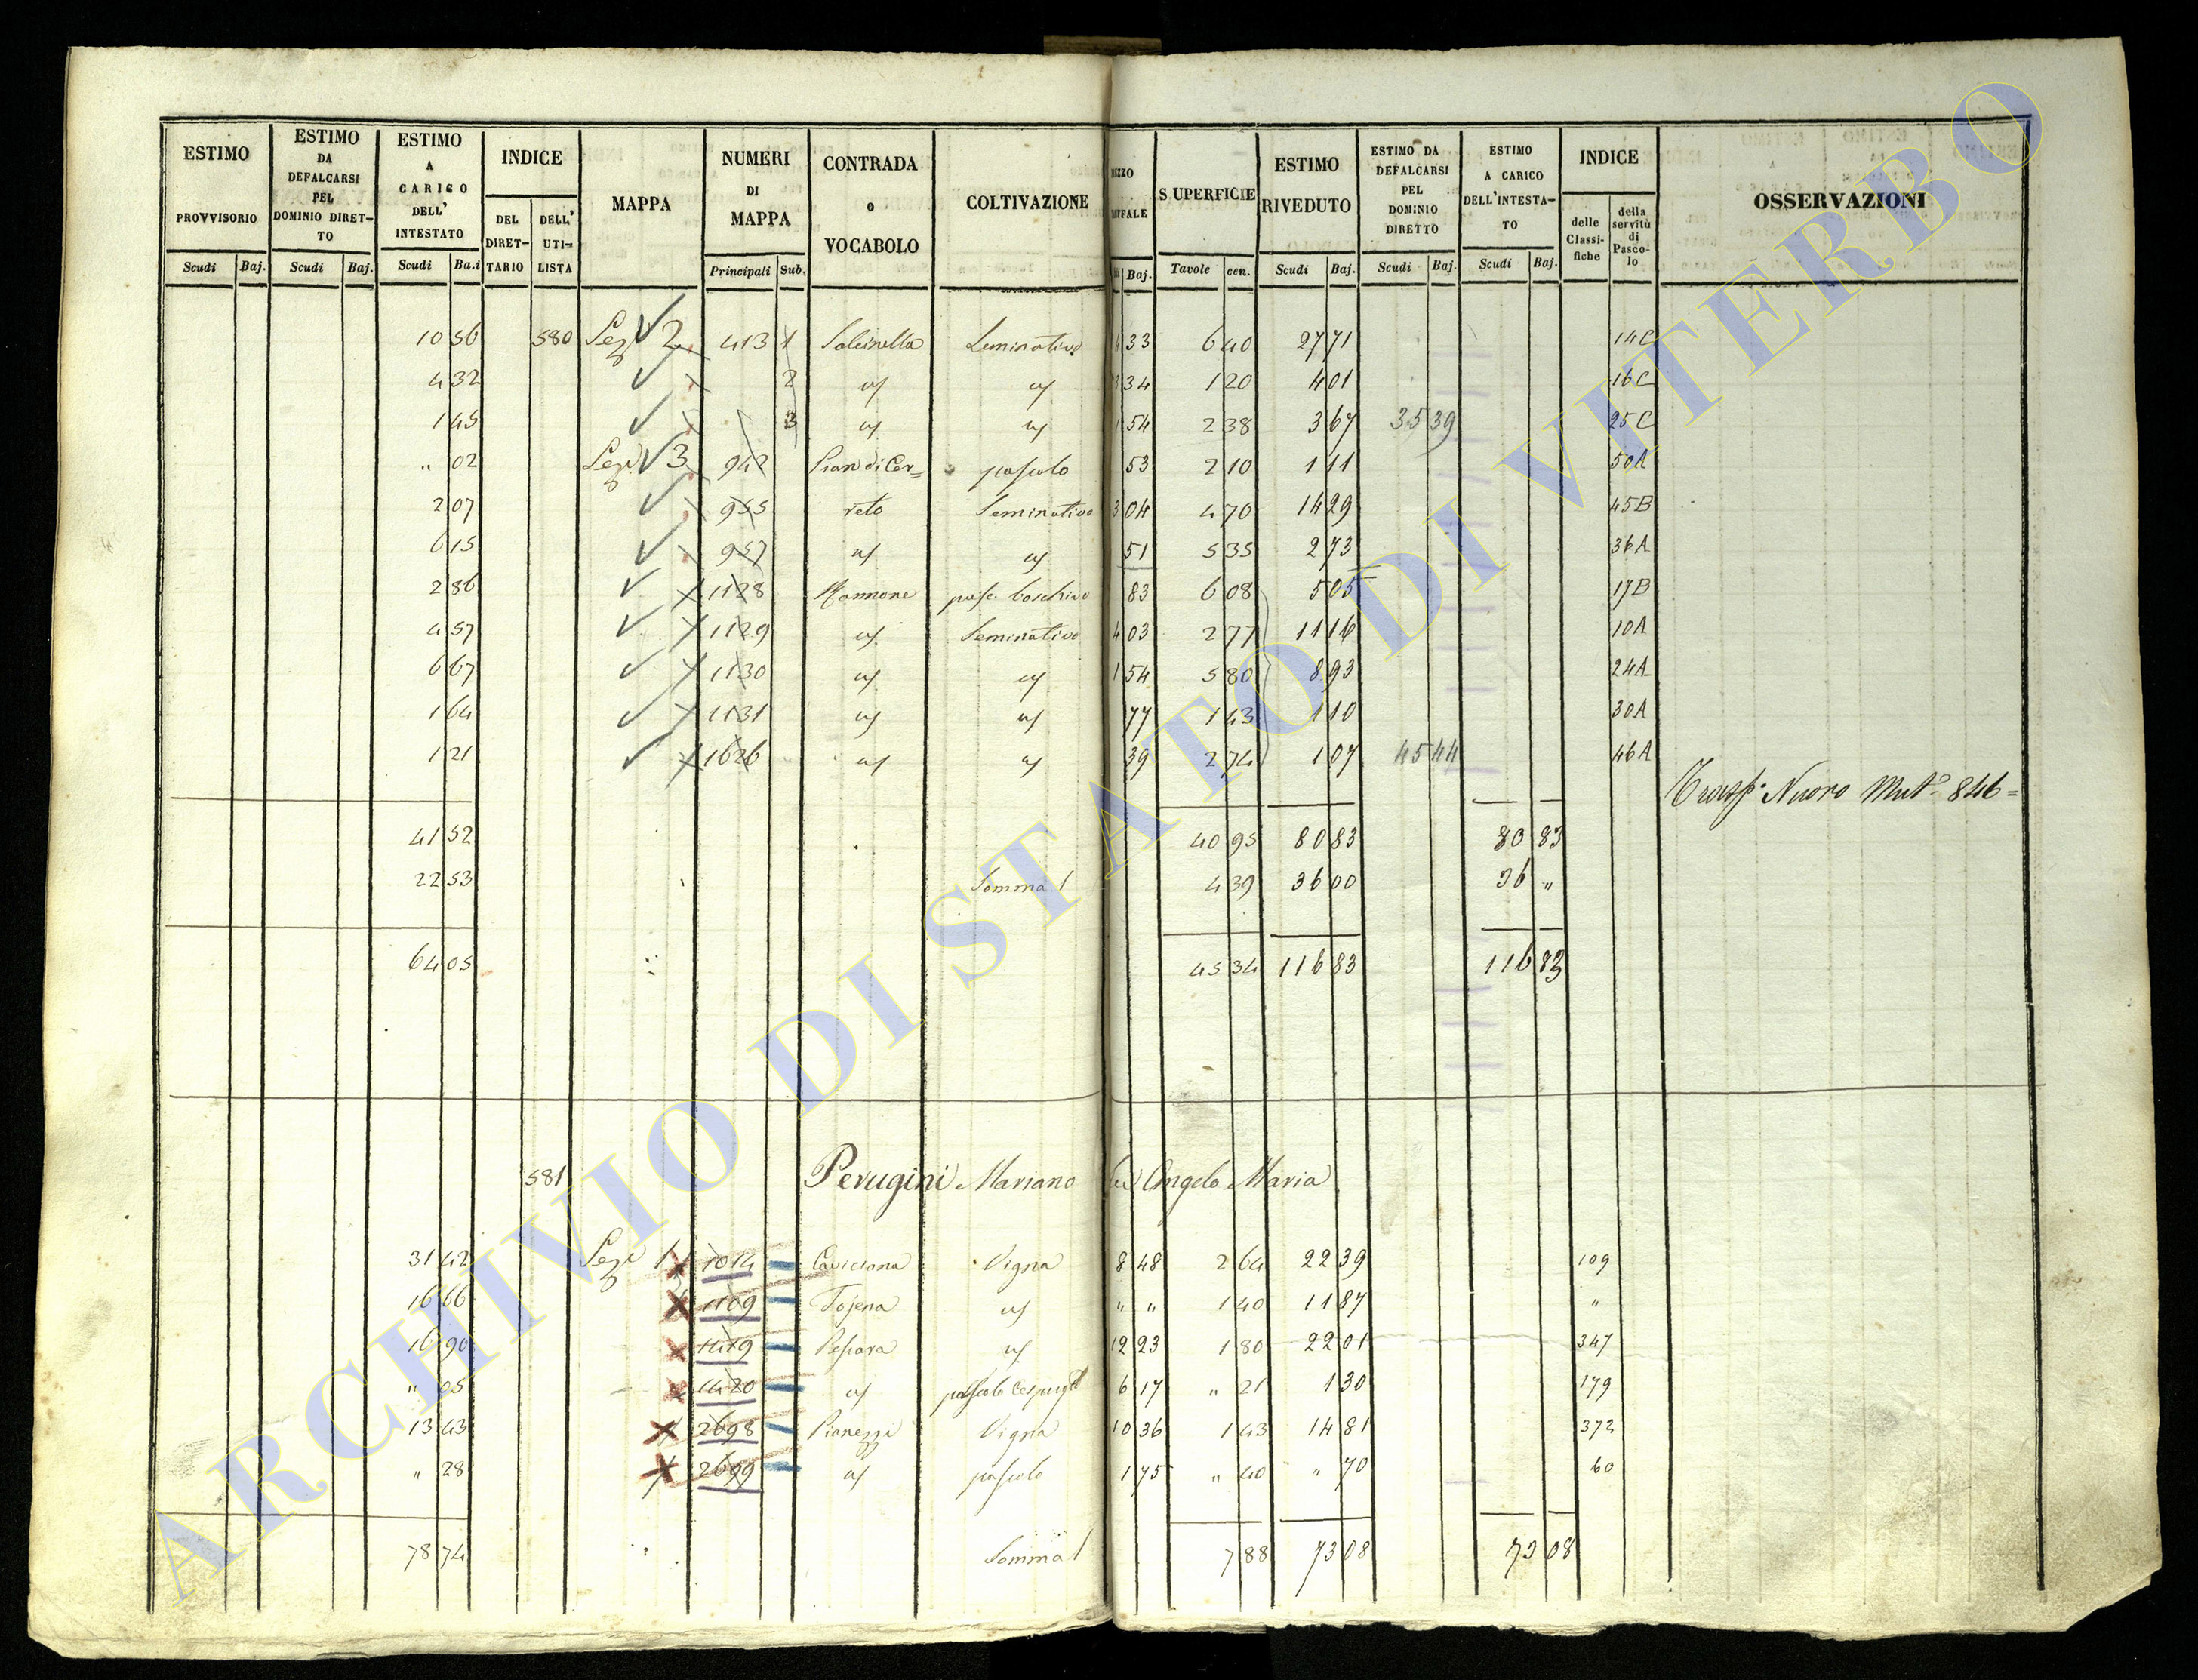 ESTIMO PROVVISORIO Scudi Baj. ESTIMO DA DEFALCARSI PEL DOMINIO DIRET-TO Scudi Baj. ESTIMO A CARICO DELL' INTESTATO Scudi Ba.i INDICE DEL DIRET-TARIO DELL' UTI-LISTA MAPPA NUMERI DI MAPPA Principali Sub. CONTRADA o VOCABOLO COLTIVAZIONE Baj. SUPERFICIE Tavole cen. ESTIMO RIVEDUTO Scudi Baj. ESTIMO DA DEFALCARSI PEL DOMINIO DIRETTO Scudi Baj. ESTIMO A CARICO DELL'INTESTA-TO Scudi Baj. INDICE delle Classi-fiche della servitù di Pasco-lo OSSERVAZIONI
10 56 580 Sez.e 2 413 1 Salcinella Seminativo 33 6 40 27 71 14C
4 32 2 " " 34 1 20 4 01 16C
1 45 3 " " 1 54 2 38 3 67 35 39 25C
" 02 Sez.e 3 942 Pian di Cer= pascolo 53 2 10 1 11 50A
2 07 955 reto Seminativo 3 04 4 70 14 29 45B
6 15 957 " " 51 5 35 2 73 36A
2 86 1128 pasc. boschivo 83 6 08 5 05 17B
4 57 1129 " Seminativo 4 03 2 77 11 16 10A
6 67 1130 " " 1 54 5 80 8 93 24A
1 64 1131 " " 77 1 43 1 10 30A
1 21 1626 " " 39 2 74 1 07 45 44 46A
Trasp. Nuovo Mut.e 846=
41 52 40 95 80 83 80 83
22 53 Somma 4 39 36 00 36 "
64 05 45 34 116 83 116 83
581 Perugini Mariano fu Angelo Maria
31 42 Sez.e 1 1014 Caviciana Vigna 8 48 2 64 22 39 109
16 66 1109 Tojena " " " 1 40 11 87 "
16 90 1419 Pescara " 12 23 1 80 22 01 347
" 05 1420 " pascolo cespugl.o 6 17 " 21 1 30 179
13 43 2698 Pianezzi Vigna 10 36 1 43 14 81 372
" 28 2699 " pascolo 1 75 " 40 " 70 60
78 74 Somma 7 88 73 08 73 08
ARCHIVIO DI STATO DI VITERBO